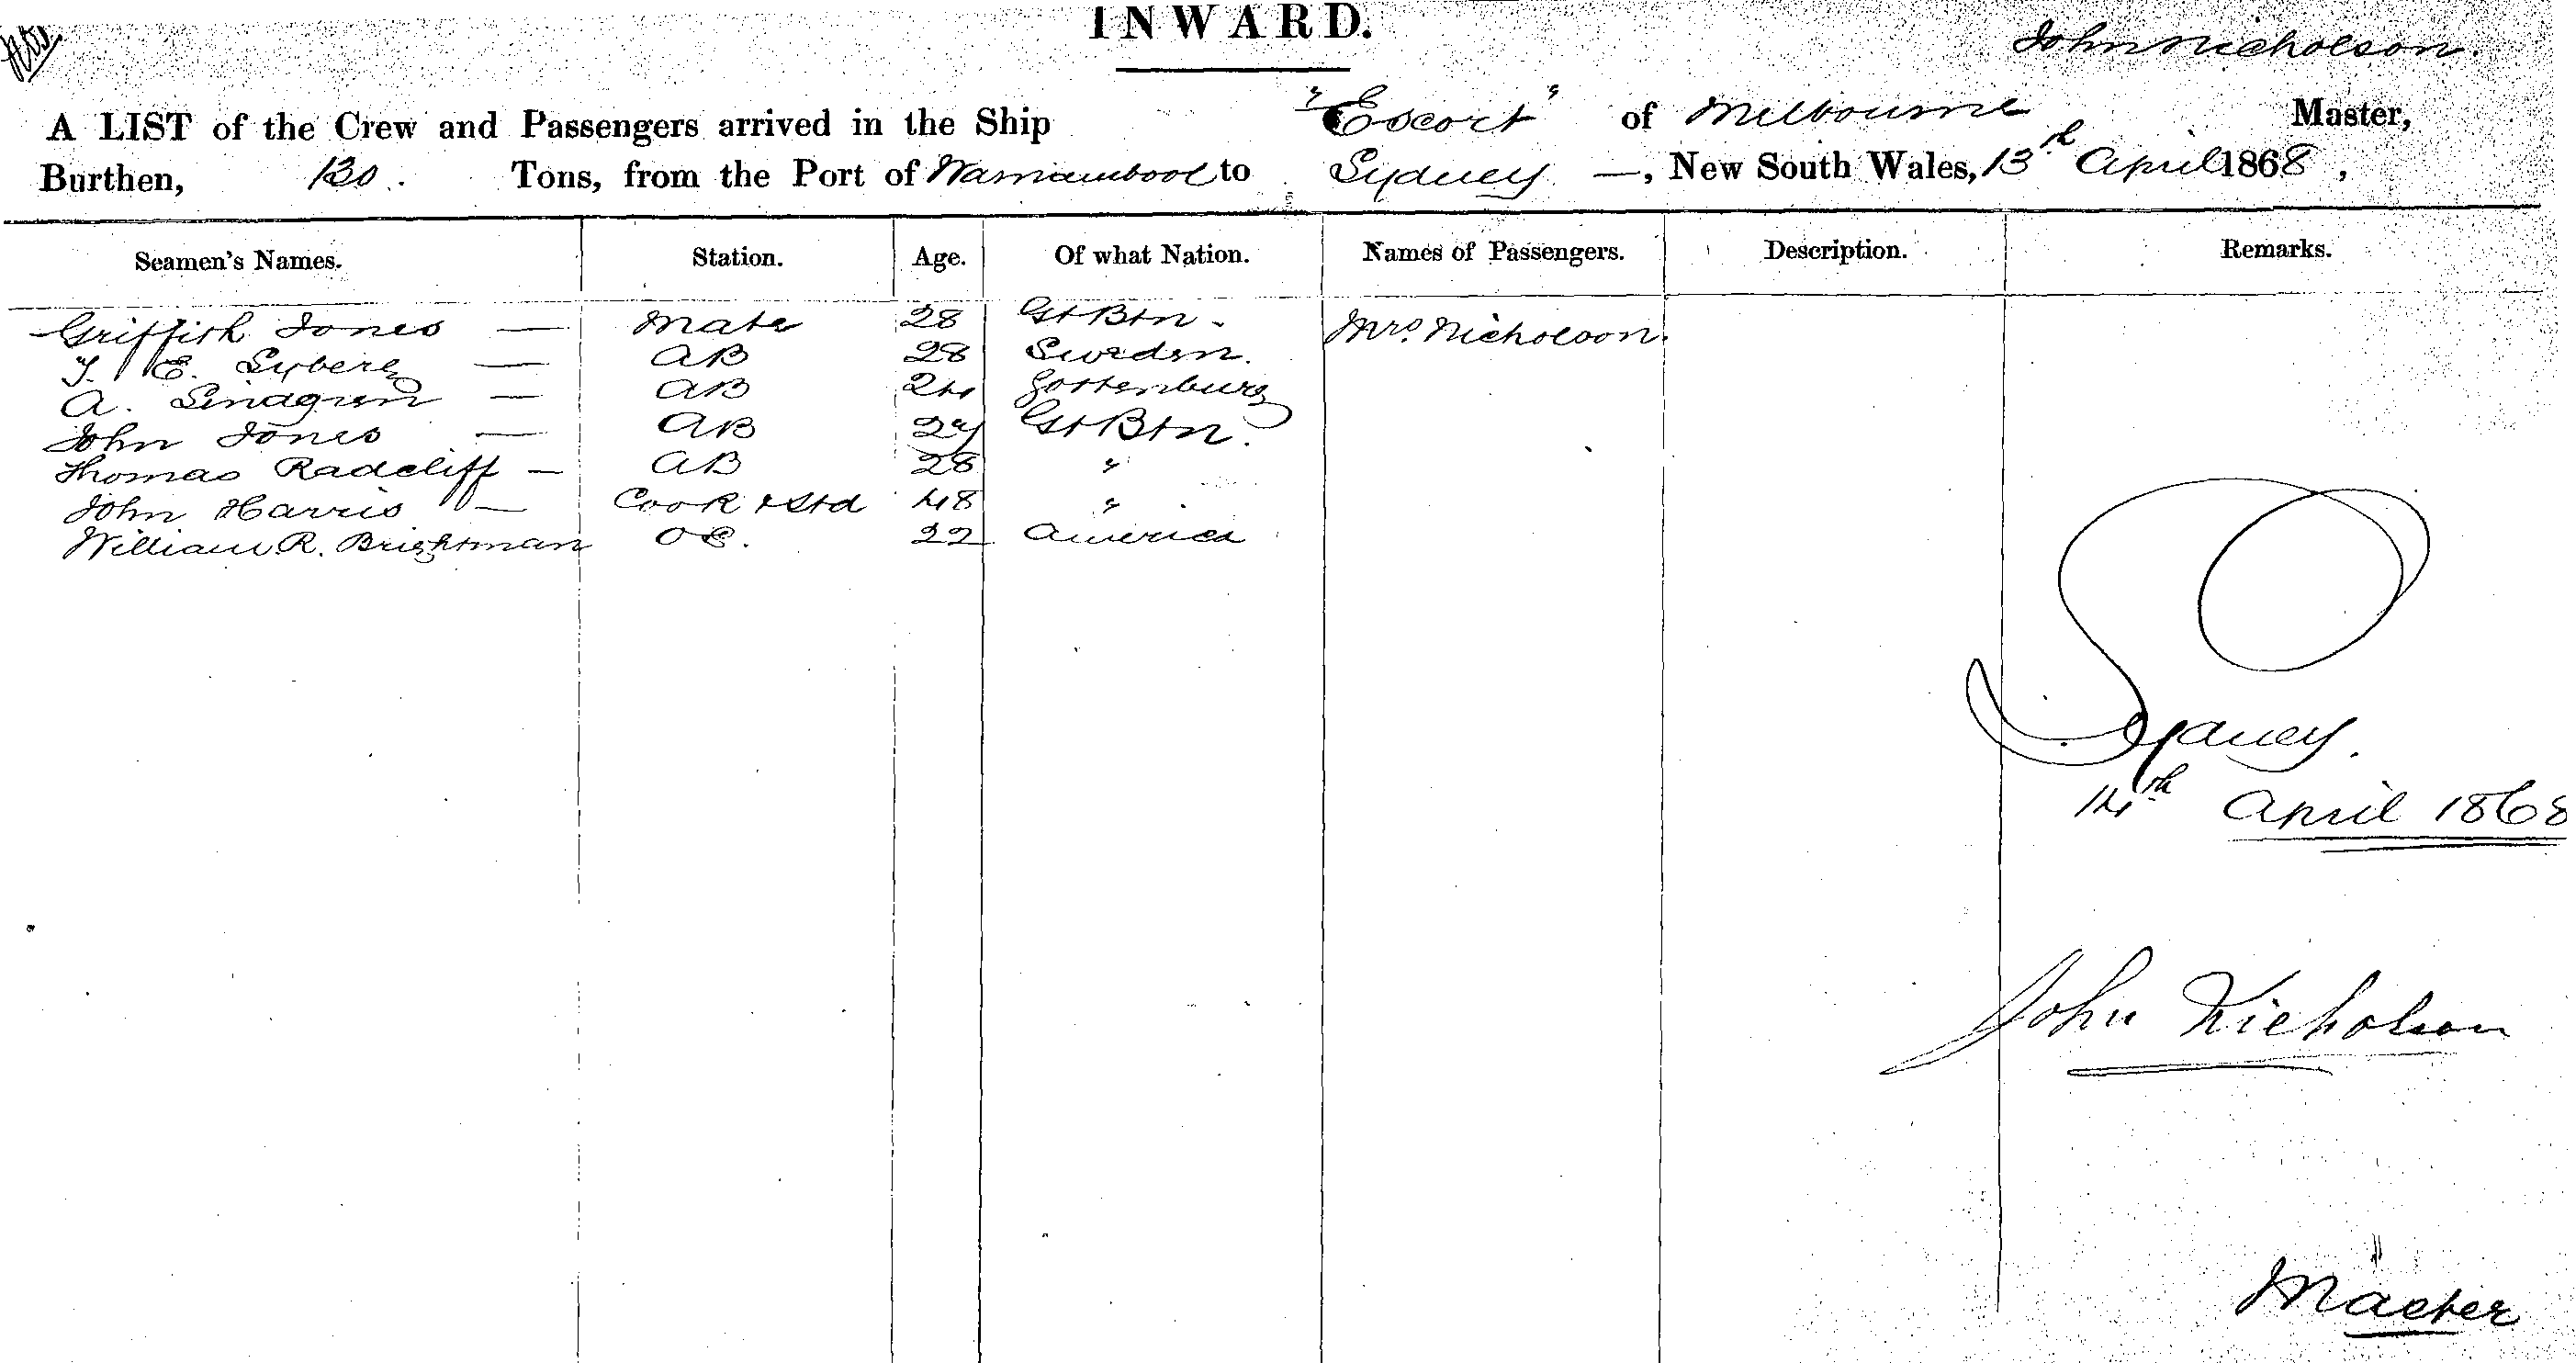 INWARD.
John Nicholson.
A LIST of the Crew and Passengers arrived in the Ship "Escort" of Melbourne Master,
Burthen, 130. Tons, from the Port of Warnambool to Sydney —, New South Wales, 13th April 1868,
Seamen's Names. Station. Age. Of what Nation. Names of Passengers. Description. Remarks.
Griffith Jones — Mate 28 Gt Btn - Mrs. Nicholson.
E. — AB 28 Sweden.
A. Lindgren — AB 24 Gottenburg
John Jones — AB 27 Gt Btn.
Thomas Radcliff — AB 28 "
John Harris — Cook & Std 48 "
William R. Brightman OS. 22 America
Sydney.
14th April 1868
John Nicholson
Master